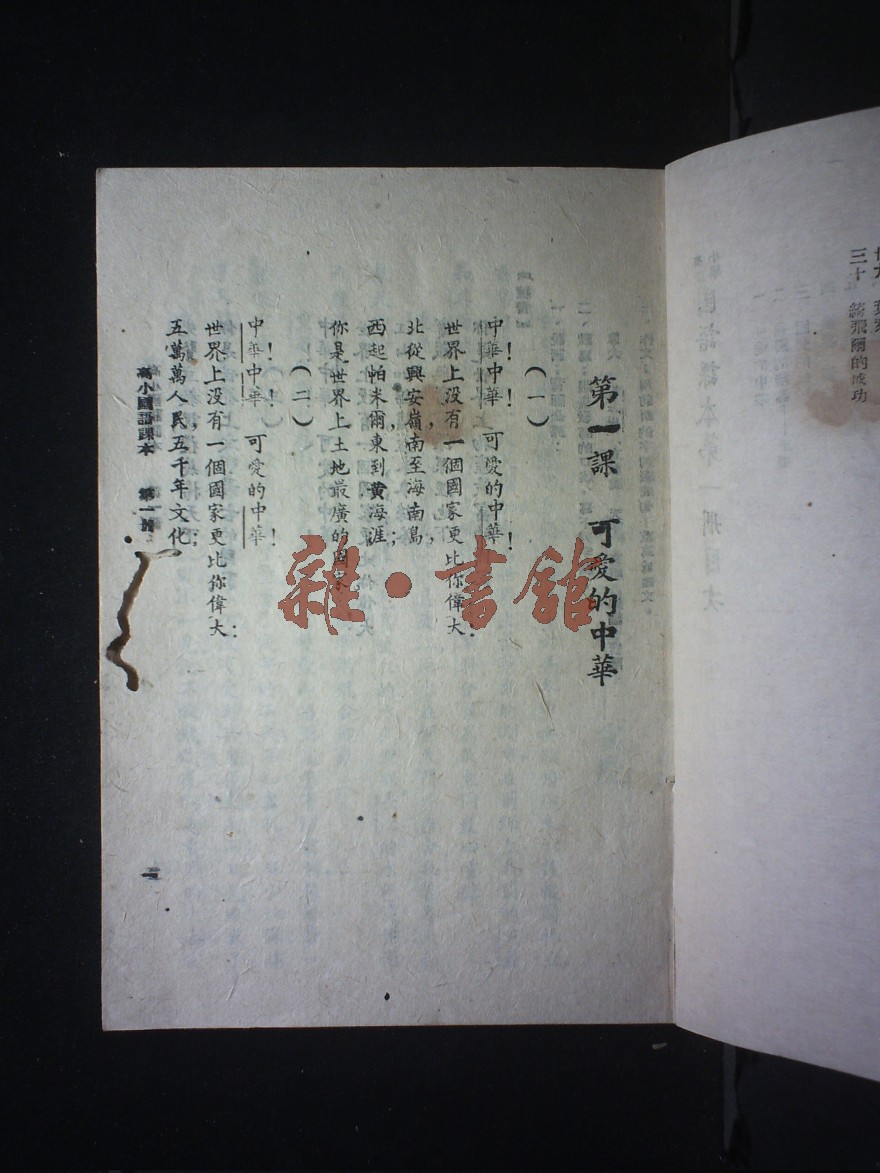 三十 綺飛爾的成功
第一課 可愛的中華
(一)
中華!中華!可愛的中華!
世界上没有一個國家更比你偉大:
北從興安嶺,南至海南島,
西起帕米爾,東到黄海涯;
你是世界上土地最廣的國家。
(二)
中華!中華!可愛的中華!
世界上没有一個國家更比你偉大:
五萬萬人民,五千年文化;
高小國語課本 第一册
一
雜·書館